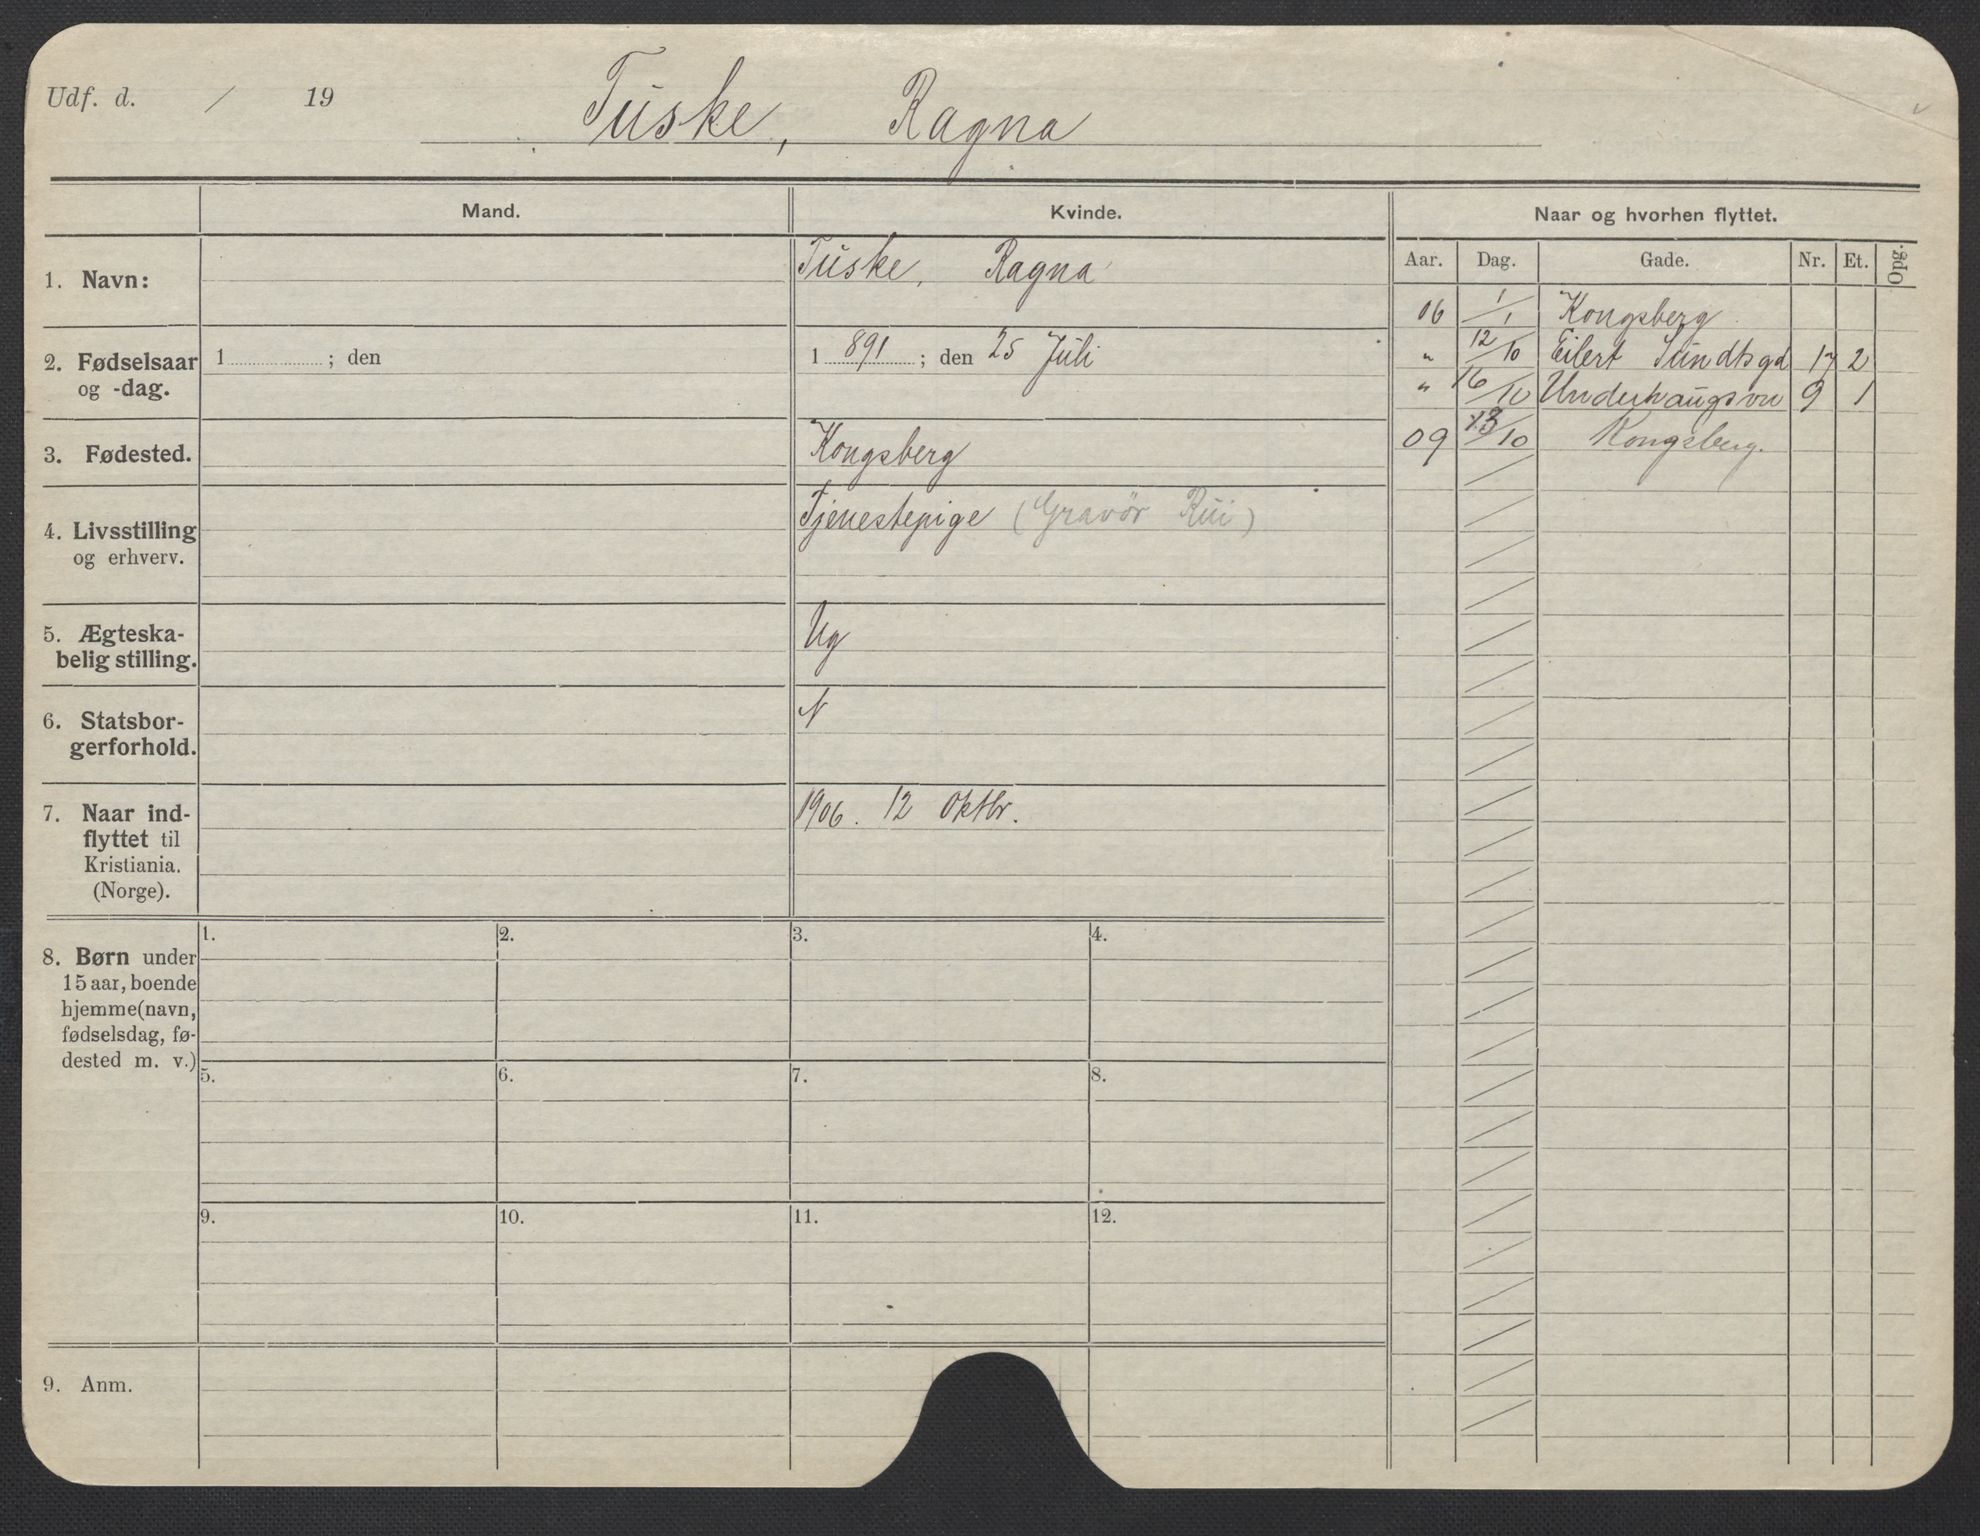 Udf. d. / 19
Tuske, Ragna
Mand.
Kvinde.
Naar og hvorhen flyttet.
Aar. Dag. Gade. Nr. Et. Opg.
1. Navn:
Tuske, Ragna
2. Fødselsaar
og -dag.
1 ; den
1 891 ; den 25 Juli
3. Fødested.
Kongsberg
4. Livsstilling
og erhverv.
Tjenestepige (Gravør Rui)
5. Ægteska-
belig stilling.
Ug
6. Statsbor-
gerforhold.
N
7. Naar ind-
flyttet til
Kristiania.
(Norge).
1906. 12 Oktbr.
06 1/1 Kongsberg
" 12/10 Eilert Sundtsgd 17 2
" 16/10 Underhaugsvn 9 1
09 13/10 Kongsberg.
8. Børn under
15 aar, boende
hjemme (navn,
fødselsdag, fø-
dested m. v.)
1. 2. 3. 4.
5. 6. 7. 8.
9. 10. 11. 12.
9. Anm.